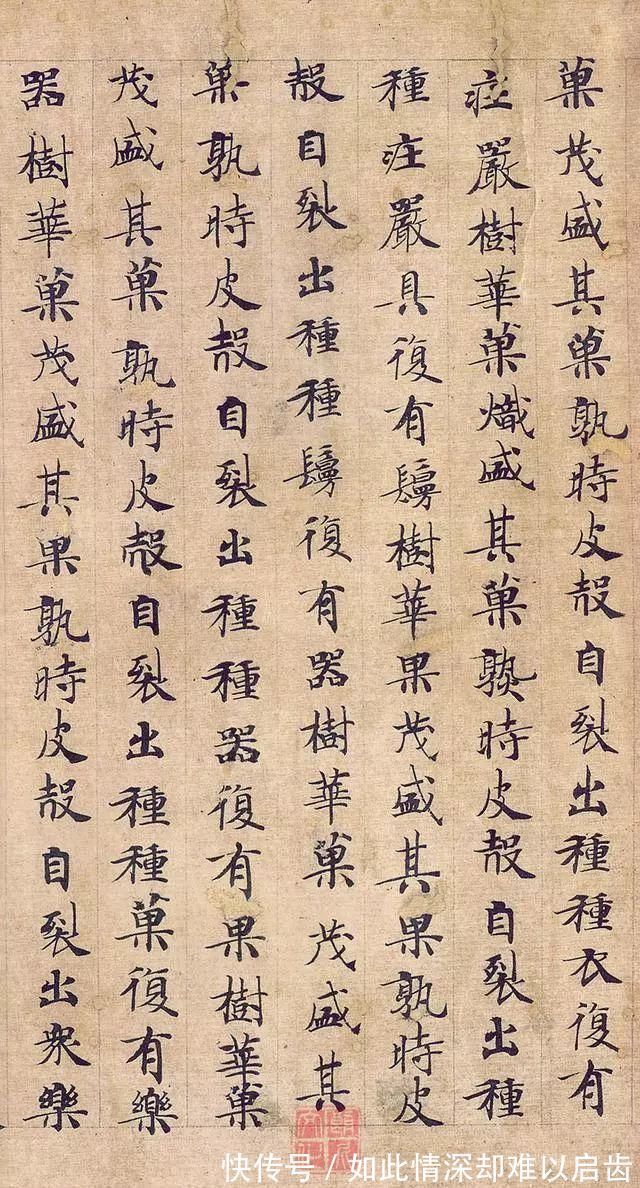 菓茂盛其菓孰時皮殻自裂出種種衣復有
㽵嚴樹華菓熾盛其菓孰時皮殻自裂出種
種㽵嚴具復有鬘樹華果茂盛其果孰時皮
殻自裂出種種鬘復有器樹華菓茂盛其
菓孰時皮殻自裂出種種器復有果樹華菓
茂盛其菓孰時皮殻自裂出種種菓復有樂
器樹華菓茂盛其果孰時皮殻自裂出眾樂
快传号 / 如此情深却难以启齿